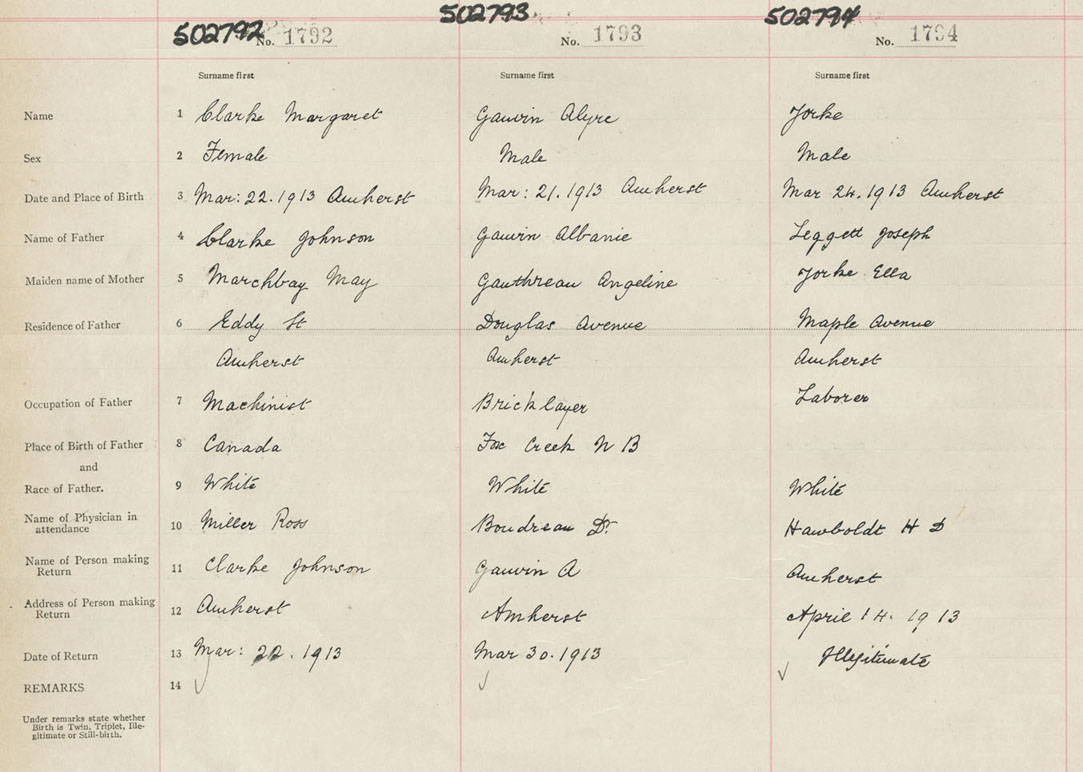 502792 No. 1792 502793 No. 1793 502794 No. 1794
Surname first Surname first Surname first
Name 1 Clarke Margaret Gauvin Alyre Yorke
Sex 2 Female Male Male
Date and Place of Birth 3 Mar: 22. 1913 Amherst Mar: 21. 1913 Amherst Mar 24. 1913 Amherst
Name of Father 4 Clarke Johnson Gauvin Albanie Leggett Joseph
Maiden name of Mother 5 Marchbay May Gauthreau Angeline Yorke Ella
Residence of Father 6 Eddy St Douglas Avenue Maple Avenue
Amherst Amherst Amherst
Occupation of Father 7 Machinist Bricklayer Laborer
Place of Birth of Father 8 Canada Fox Creek N B
and
Race of Father. 9 White White White
Name of Physician in
attendance 10 Miller Ross Boudreau Dr. Hawboldt H D
Name of Person making
Return 11 Clarke Johnson Gauvin A Amherst
Address of Person making
Return 12 Amherst Amherst April 14. 1913
Date of Return 13 Mar: 22. 1913 Mar 30. 1913 Illegitimate
REMARKS 14
Under remarks state whether
Birth is Twin, Triplet, Ille-
gitimate or Still-birth.